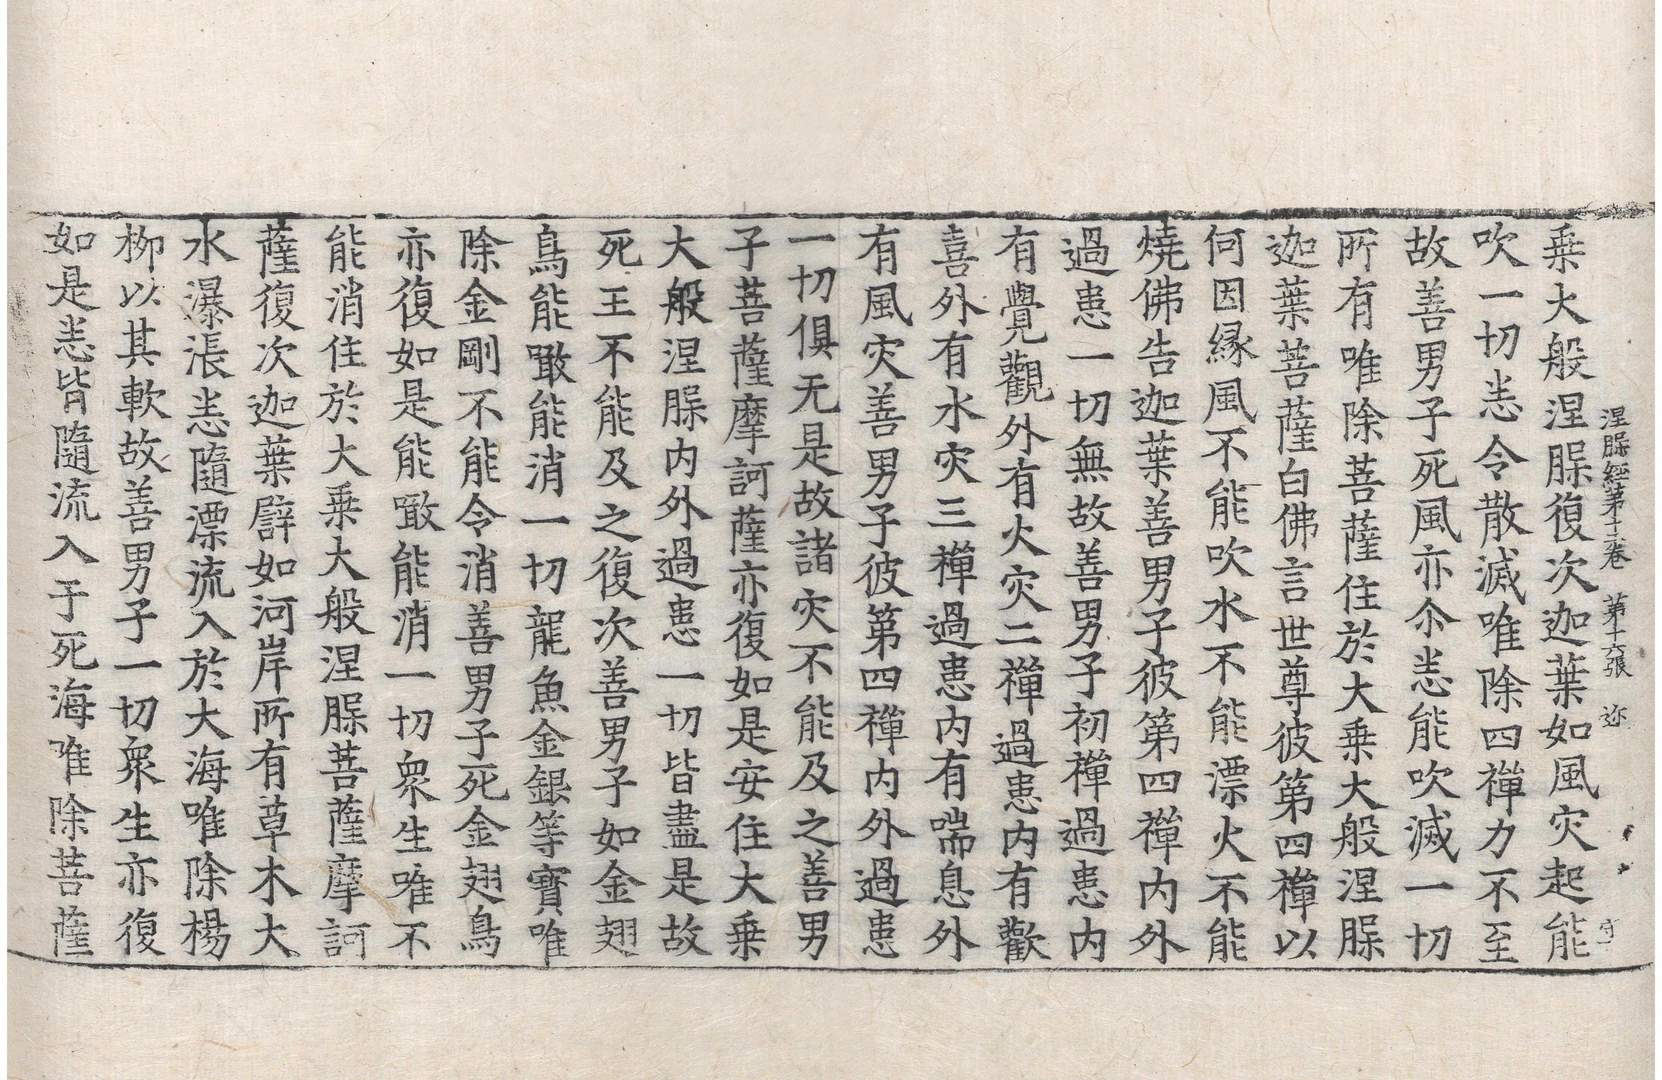 涅槃經第十二卷　第十六張　迩
乗大般涅槃復次迦葉如風灾起能
吹一切悉令散滅唯除四禪力不至
故善男子死風亦尒悉能吹滅一切
所有唯除菩薩住於大乗大般涅槃
迦葉菩薩白佛言世尊彼第四禪以
何因縁風不能吹水不能漂火不能
燒佛告迦葉善男子彼第四禪内外
過患一切無故善男子初禪過患内
有覺觀外有火灾二禪過患内有歡
喜外有水灾三禪過患内有喘息外
有風灾善男子彼第四禪内外過患
一切俱无是故諸灾不能及之善男
子菩薩摩訶薩亦復如是安住大乗
大般涅槃内外過患一切皆盡是故
死王不能及之復次善男子如金翅
鳥能噉能消一切龍魚金銀等寳唯
除金剛不能令消善男子死金翅鳥
亦復如是能噉能消一切衆生唯不
能消住於大乗大般涅槃菩薩摩訶
薩復次迦葉譬如河岸所有草木大
水瀑漲悉隨漂流入於大海唯除楊
栁以其軟故善男子一切衆生亦復
如是悉皆隨流入于死海唯除菩薩